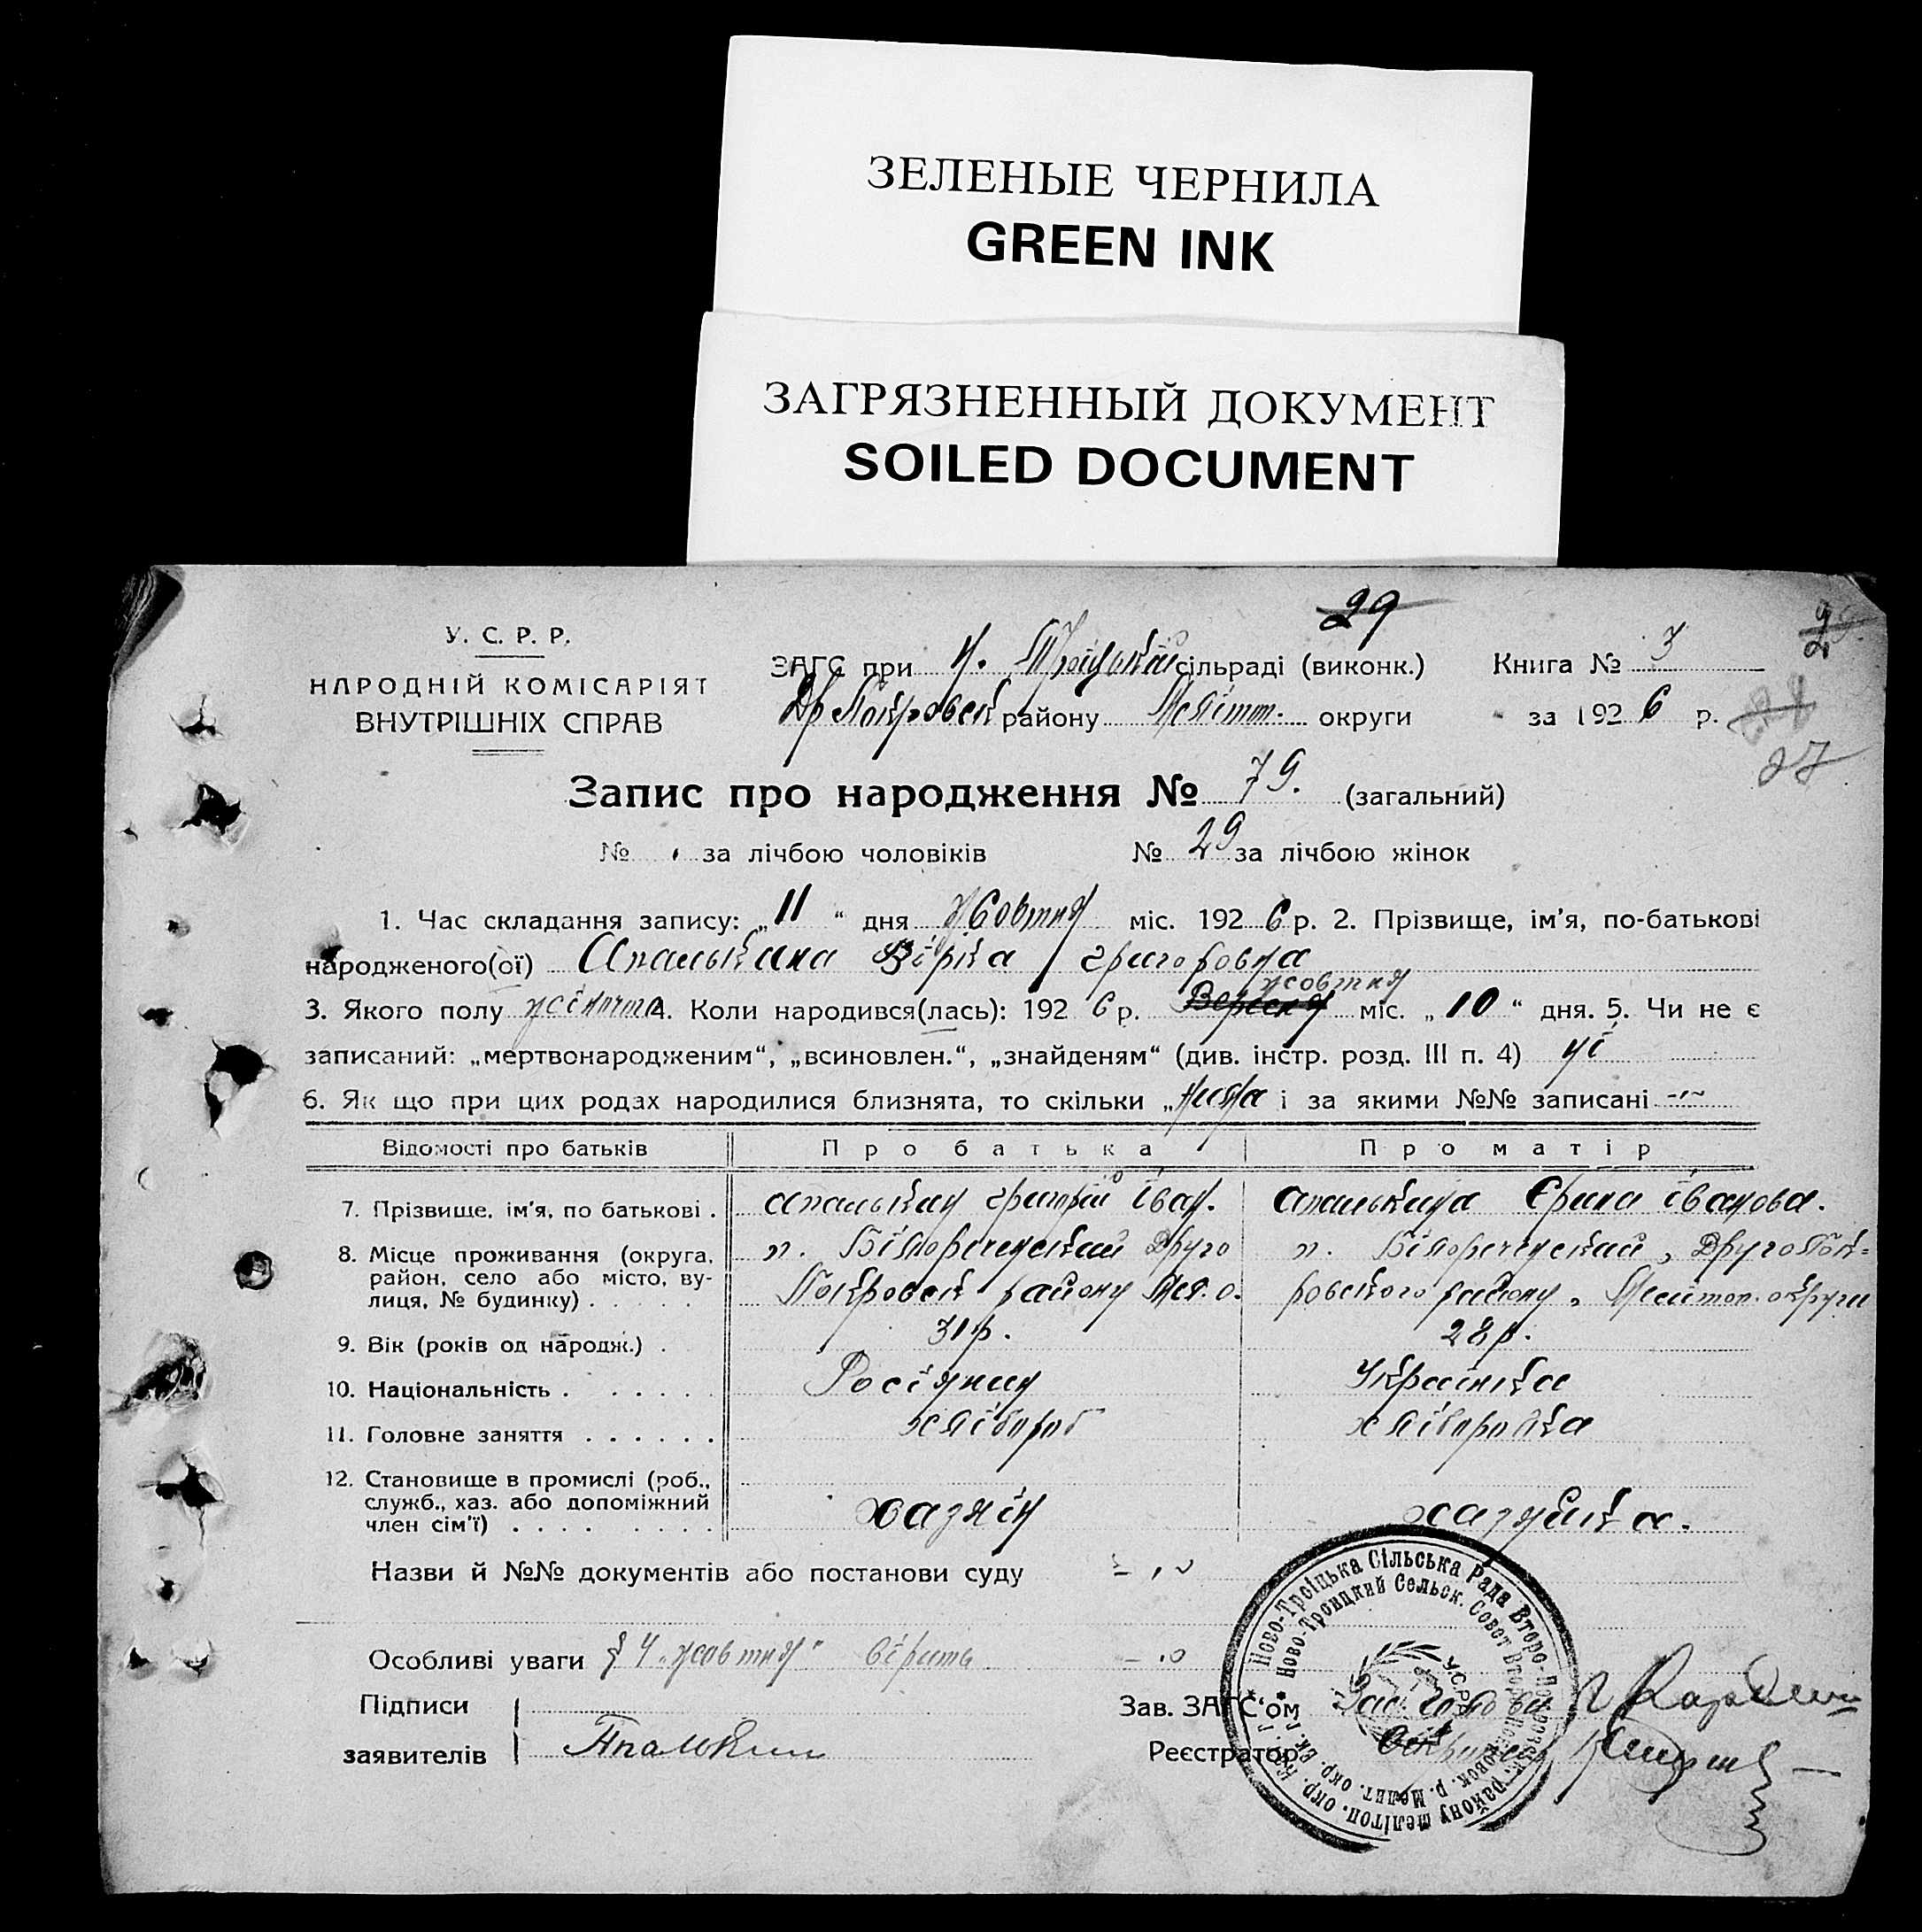 ЗЕЛЕНЫЕ ЧЕРНИЛА
GREEN INK
ЗАГРЯЗНЕННЫЙ ДОКУМЕНТ
SOILED DOCUMENT
29
У. С. Р. Р.
НАРОДНІЙ КОМІСАРІЯТ
ВНУТРІШНІХ СПРАВ
ЗАГС при Н. Троіцькій сільраді (виконк.) Книга № 3
Др Покровск району Меліт. округи за 1926 р.
27
Запис про народження № 79. (загальний)
№ за лічбою чоловіків № 29 за лічбою жінок
1. Час складання запису: „11“ дня жовтня міс. 1926 р. 2. Прізвище, ім'я, по-батькові
народженого(ої) Апалькина Віріка Григоровна
жовтня
3. Якого полу жіночта 4. Коли народився(лась): 1926 р. Вересня міс. „10“ дня. 5. Чи не є
записаний: „мертвонародженим“, „всиновлен.“, „знайденям“ (див. інстр. розд. III п. 4) ні
6. Як що при цих родах народилися близнята, то скільки „ нема і за якими №№ записані
Відомості про батьків Про батька Про матір
7. Прізвище, ім'я, по батькові . Апалькин Григорій Іван. Апалькина Єрина Іванова.
8. Місце проживання (округа, район, село або місто, вулиця, № будинку) . . . . .
х. Білореченский Друго
Покровск району Мел. о.
х. Білореченский, ДругоПок-
ровского району, Мелитоп. округи
9. Вік (років од народж.) . 31 р. 28 р.
10. Національність . . . . . . Росіянин Українка
11. Головне заняття . . . . . . хлібороб хліборобка
12. Становище в промислі (роб., служб., хаз. або допоміжний член сім'ї) . . . .
хазяїн хазяйка.
Назви й №№ документів або постанови суду
Особливі уваги § 4 „жовтня" вірить
Підписи
заявителів Апалькин
Зав. ЗАГС'ом Заст Голови
Реєстратор Секритар
Ново-Троіцька Сільська Рада Второ-Покровськ. району Мелітоп. окр.
Ново-Троицкий Сельск. Совет Второ-Покровск. р. Мелит. окр.
У.С.Р.Р.